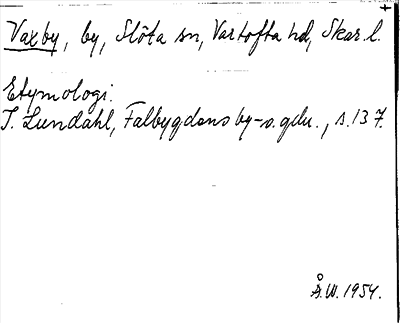 Vaxby, by, Slöta sn, Vartofta hd, Skar. l.
Etymologi.
I. Lundahl, Falbygdens by-o.gdn., s.137.
Å.W. 1954.